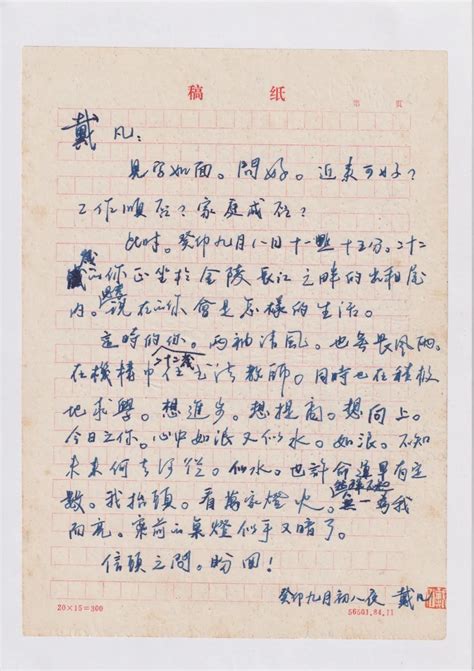 稿 纸
第 页
戴凡：
見字如面。問好。近来可好？
工作順否？家庭成否？
此时。癸卯九月八日十一點十五分。二十二
歲的你正坐於金陵長江之畔的出租屋
内。說在的你會是怎樣的生活。
定時的你。两袖清風。也無長風雨。
二十二歲
在機構中任书法教師。同時也在積极
地求學。想進步。想提高。想向上。
今日之你。心中如浪又似水。如浪。不知
未来何去何從。似水。也許命運早有定
數。我抬頭。看萬家燈火。無一為我
而亮。案前的桌燈似乎又暗了。
信頭之問。盼回！
癸卯九月初八夜 戴凡
20×15=300